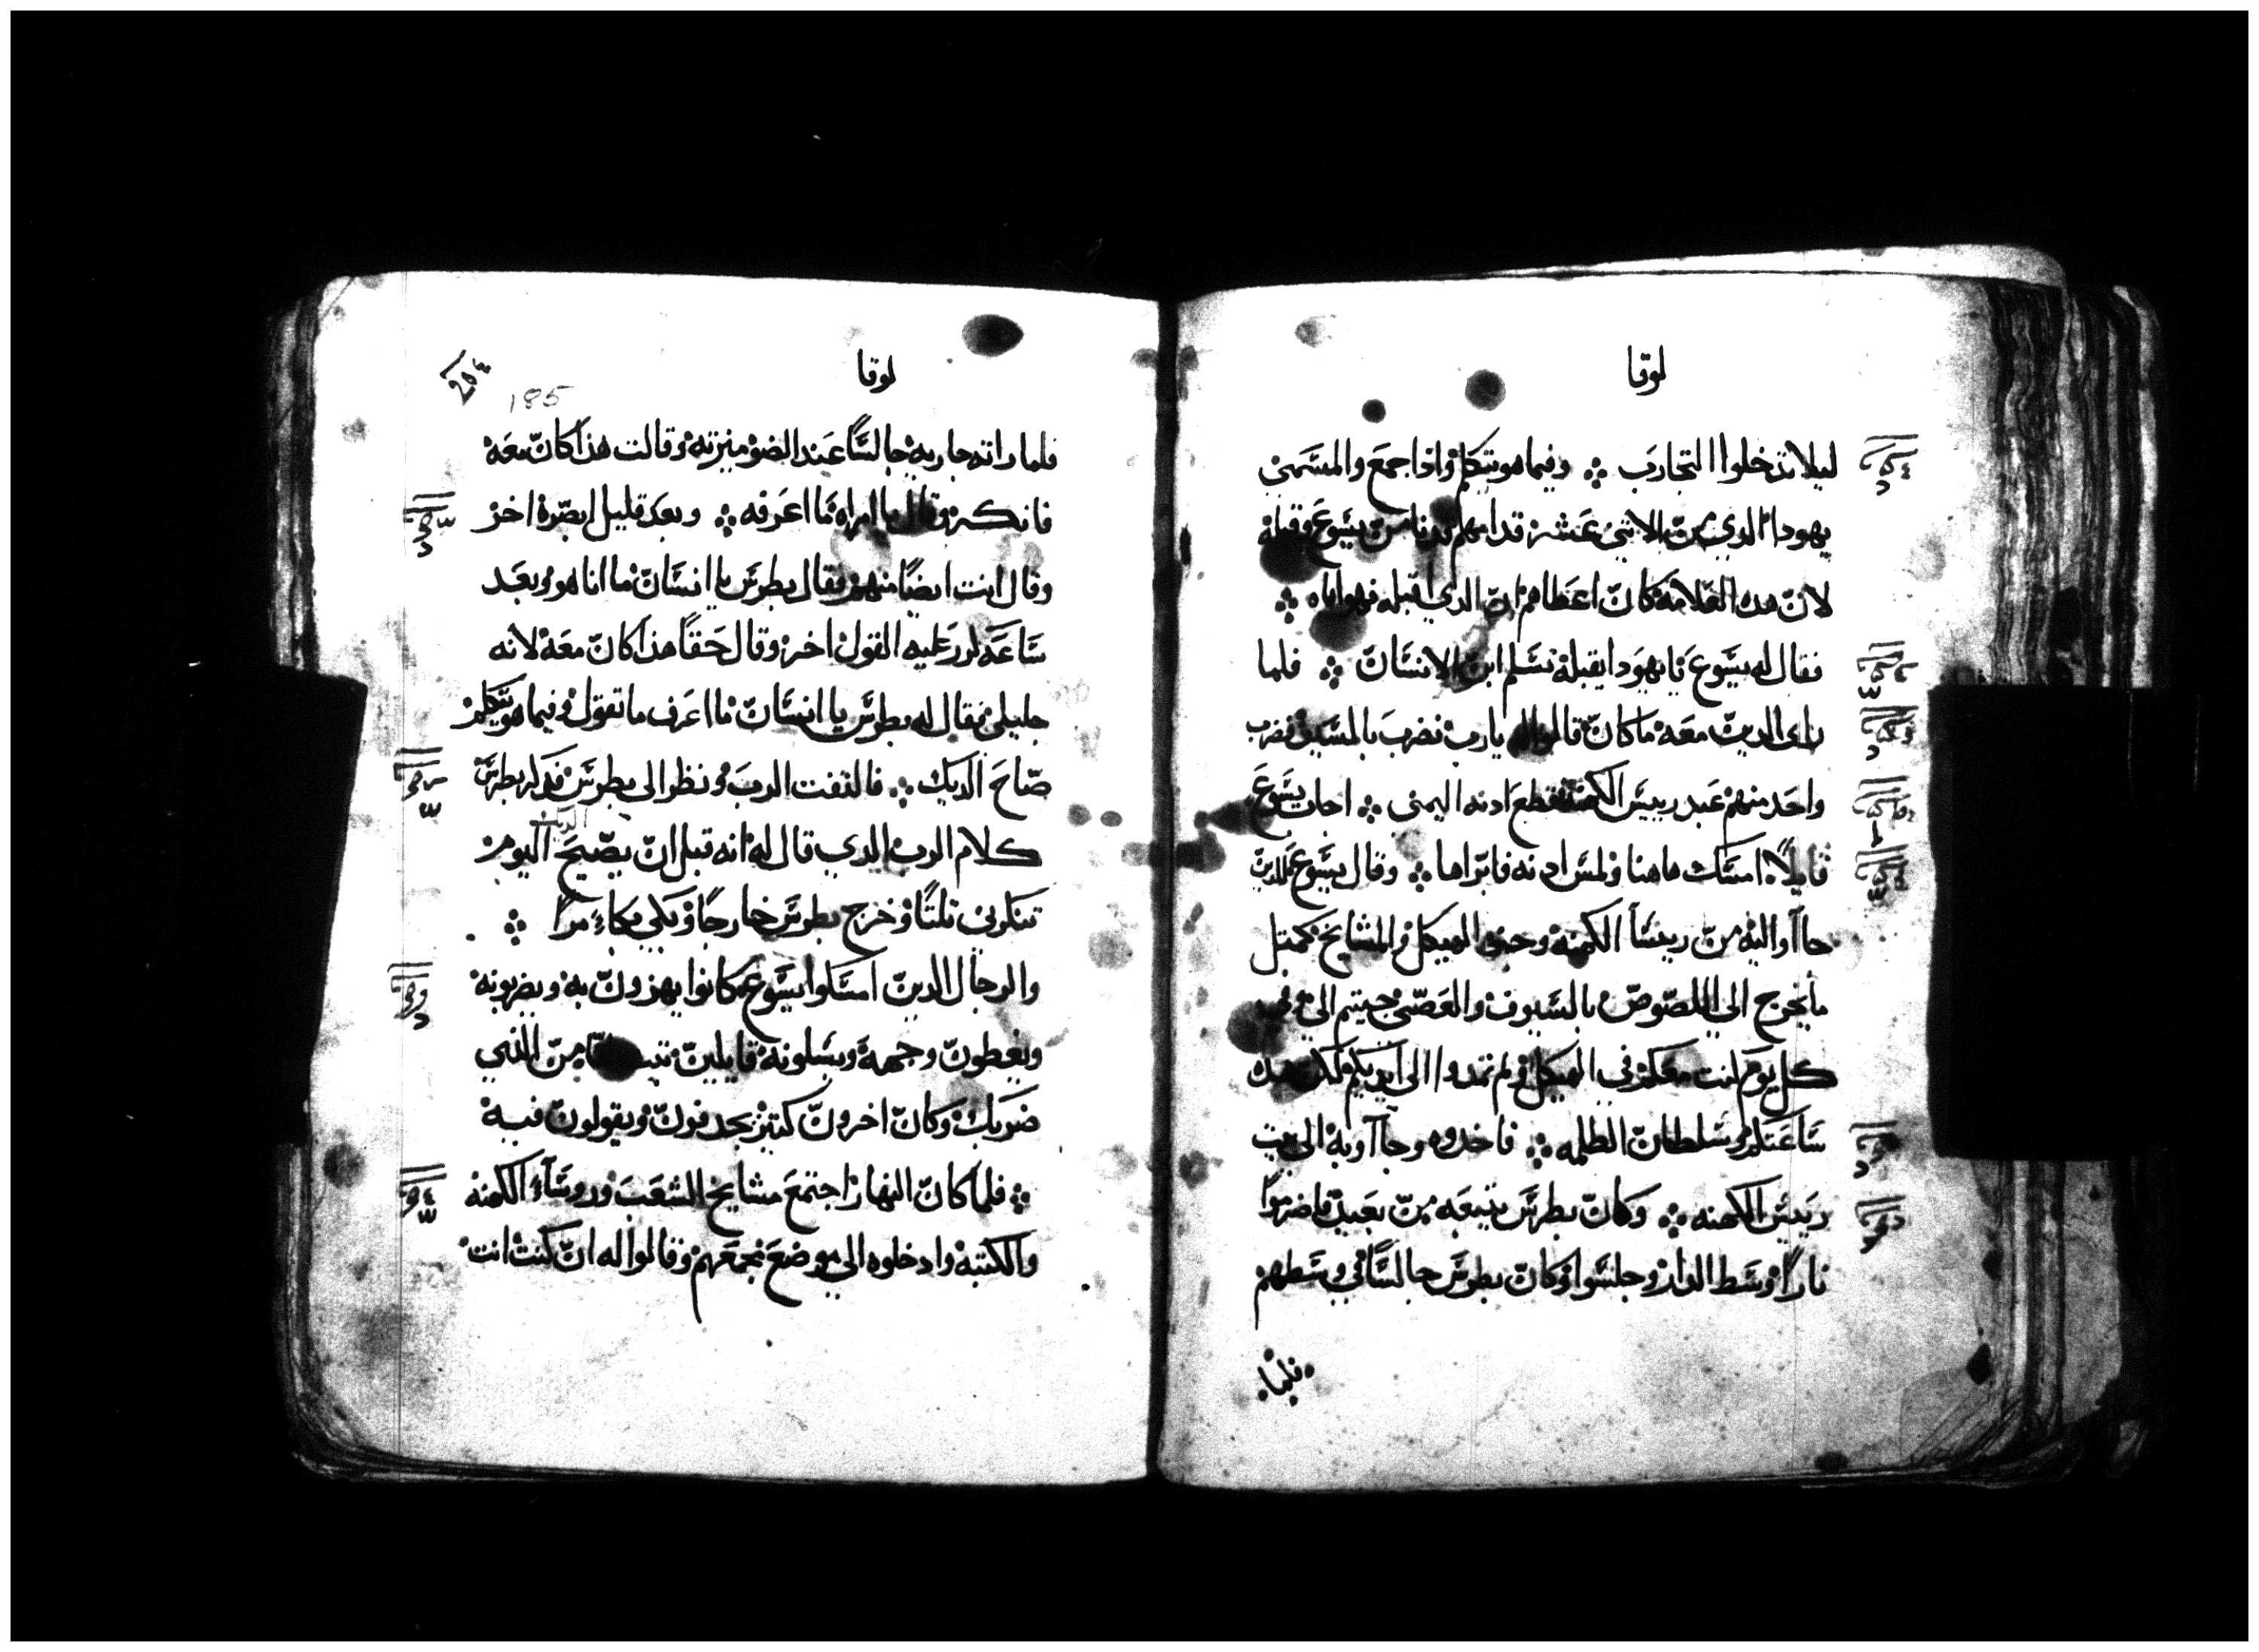 لوقا
ليلا تدخلوا التجارب ⁘ وفيما هو يتكلم واذا جمع والمسمى
يهودا الدي من الاثنى عشر قدامهم فدنا من يسوع وقبله
لان هده العلامه كان اعطاهم ان الدي اقبله فهو اياه ⁘
فقال له يسوع يا يهودا بقبلة تسلم ابن الانسان ⁘ فلما
راى الدين معه ما كان قالوا له يا رب نضرب بالسيف فضرب
واحد منهم عبد رييس الكهنة فقطع ادنه اليمنى ⁘ اجاب يسوع
قايلا امسك هاهنا ولمس ادنه فابراها ⁘ وقال يسوع للدين
جاآوا اليه من ريسا الكهنه وجند الهيكل والمشايخ كمتل
ما يخرج الي اللصوص بالسيوف والعصى جيتم الي وفي
كل يوم كنت معكم في الهيكل ولم تمدوا الى ايديكم لكن هده
ساعتكم وسلطان الظلمه ⁘ فاخدوه وجآآو به الى بيت
رييس الكهنه ⁘ وكان بطرس يتبعه من بعيد فاضرموا
نارا وسط الدار وجلسوا وكان بطرس جالسا في وسطهم
فلما
لوقا
٢٥٤
185
فلما راته جاريه جالسا عند الضو ميزته وقالت هذا كان معه
فانكر وقال يا امراه ما اعرفه ⁘ وبعد قليل ابصره اخر
وقال انت ايضا منهم فقال بطرس يا انسان ما انا هو وبعد
ساعه كرر عليه القول اخر وقال حقا هذا كان معه لانه
جليلي فقال له بطرس يا انسان ما اعرف ما تقول وفيما هو يتكلم
صاح الديك ⁘ فالتفت الرب ونظر الى بطرس فدكر بطرس
كلام الرب الدي قال له انه قبل ان يصيح الديك اليوم
تنكرني تلتا وخرج بطرس خارجا وبكى بكاء مرا ⁘
والرجال الدين امسكوا يسوع كانوا يهزون به ويضربونه
ويغطون وجهه ويسلونه قايلين من النبي
ضربك وكان اخرون كتير يجدفون ويقولون فيه
⁘ فلما كان النهار اجتمع مشايخ الشعب وروسآء الكهنه
والكتبة وادخلوه الى موضع مجمعهم وقالوا له ان كنت انت